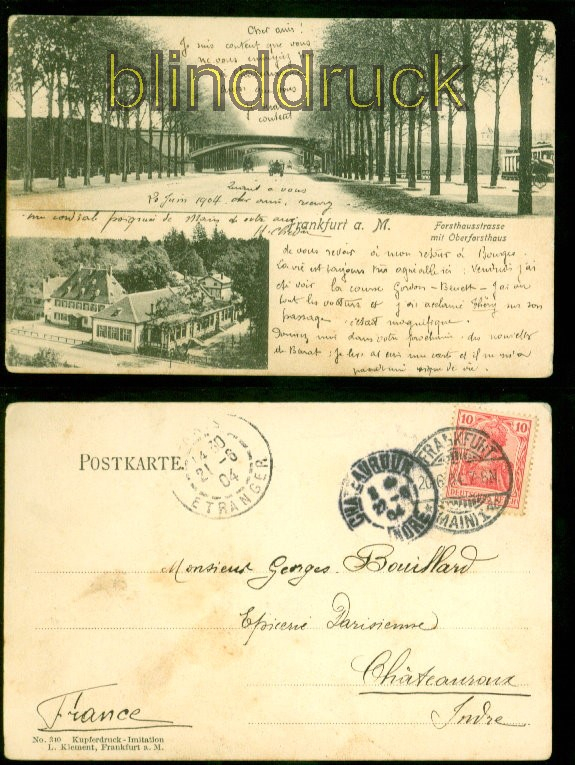 Cher ami !
Je suis content que vous
ne vous
blinddruck
vous
content
Quant à vous
20 Juin 1904 cher ami,
Frankfurt a. M.
Forsthausstrasse
mit Oberforsthaus
de vous revoir à mon retour à Bourges.
La vie est toujours très agréable ici. Vendredi j'ai
été voir la course Gordon-Benett - j'ai vu
tout les et j'ai acclamé Théry sur son
passage, c'était magnifique.
Donnez moi dans votre prochaine des nouvelles
de Barat; je lui ai une carte et il ne m'a
signe de vie.
POSTKARTE.
14 30
21 -6
04
ETRANGER
CHATEAUROUX
04
INDRE
FRANKFURT
20.6.04. 7-8N
(MAIN) 1
10 10
Monsieur Georges Bouillard
Epicerie Parisienne
Châteauroux
Indre
France
No. 310 Kupferdruck-Imitation
L. Klement, Frankfurt a. M.